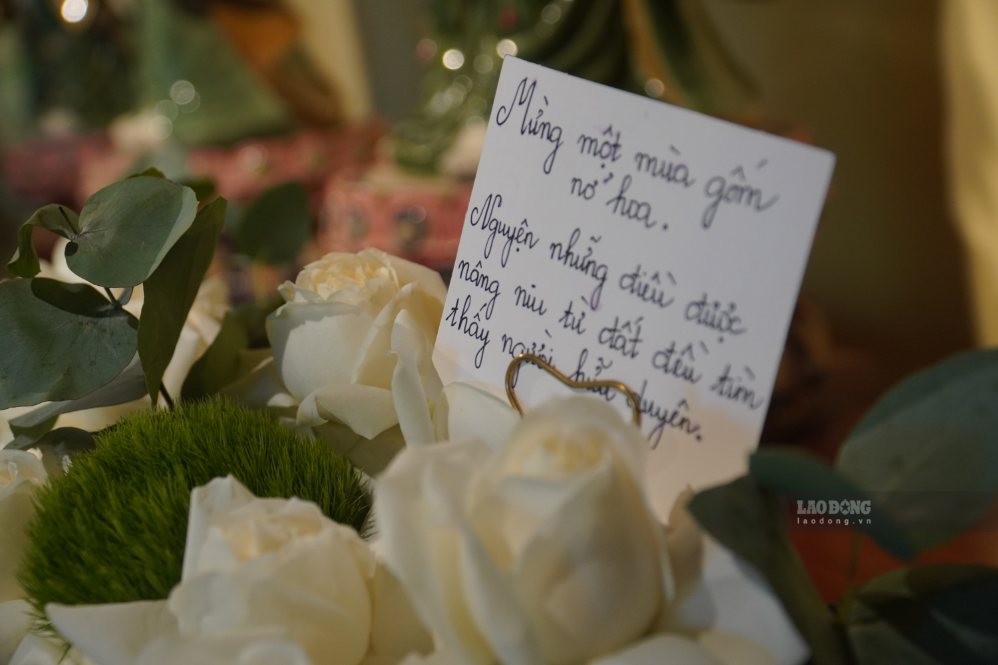 Mừng một mùa gốm
nở hoa.
Nguyện những điều được
nâng niu từ đất đều tìm
thấy người hữu duyên.
LAO ĐỘNG
laodong.vn